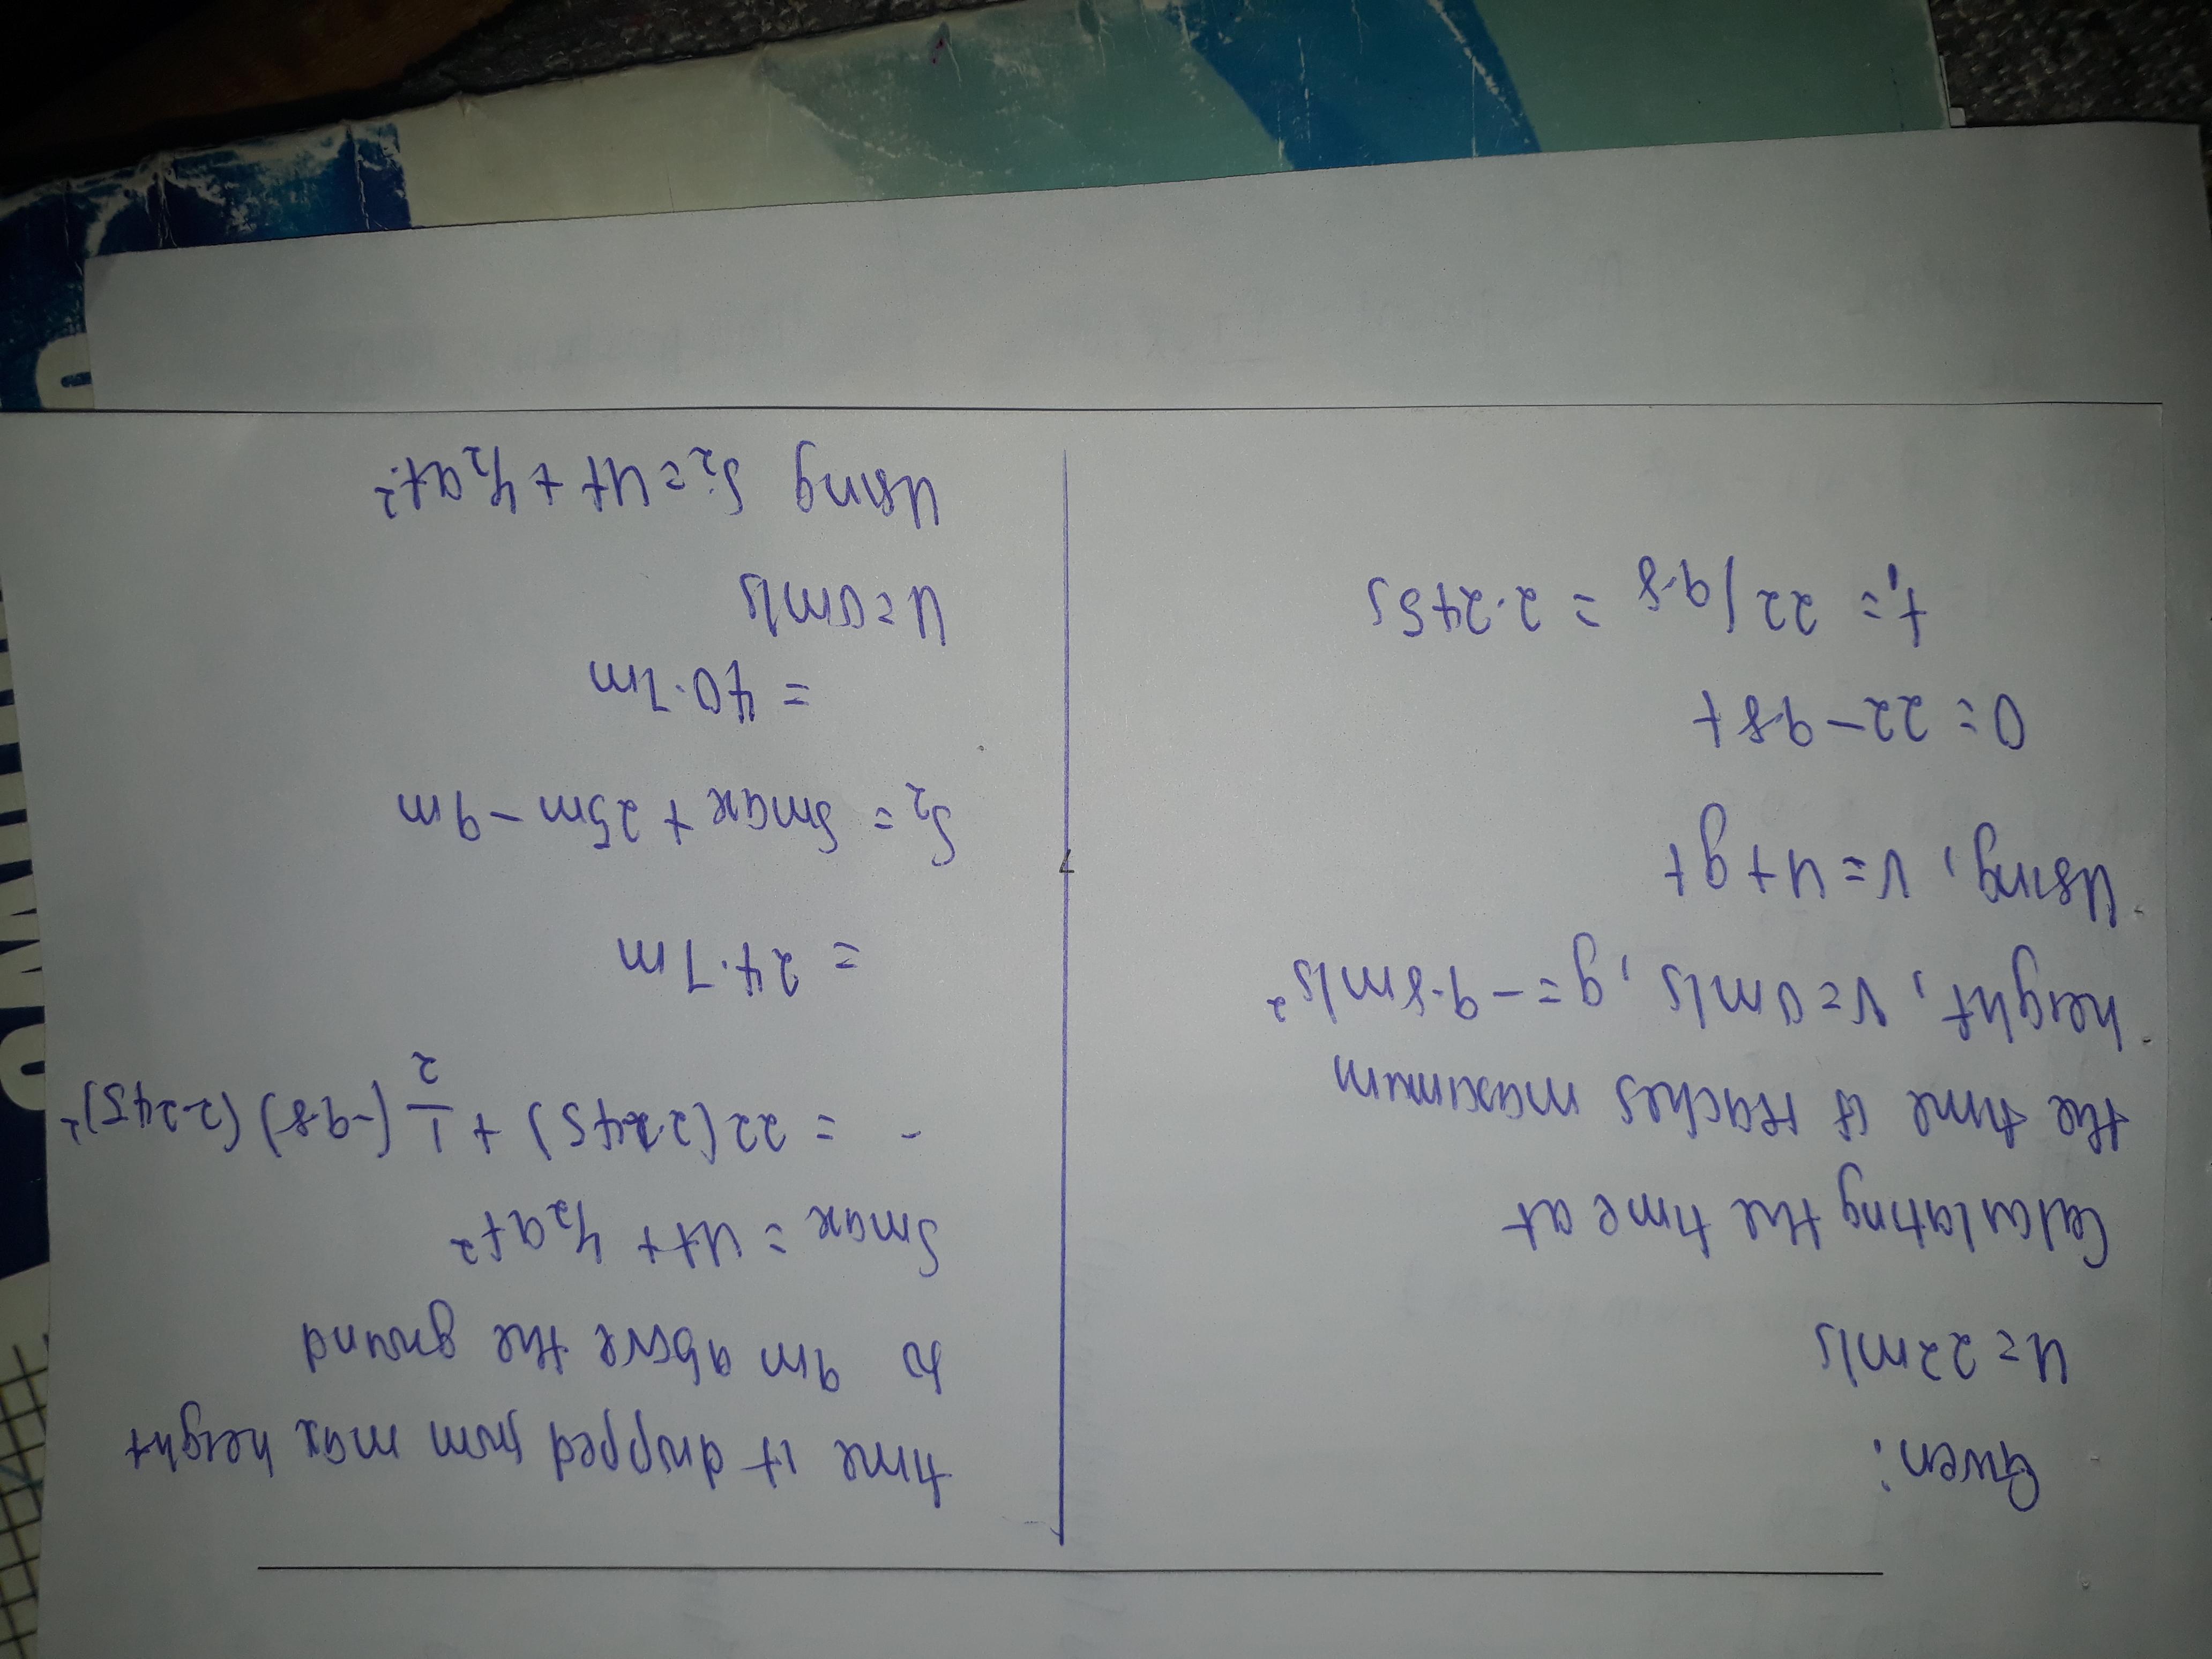 Given:
u = 22m/s
Calculating the time at
the time it reaches maximum
height, v = 0m/s, g = -9.8m/s²
Using, v = u + gt
0 = 22 - 9.8t
t₁ = 22/9.8 = 2.245s
time it dropped from max height
to 9m above the ground
Smax = ut + ½at²
= 22(2.245) + 1/2 (-9.8) (2.245)²
= 24.7m
S₂ = Smax + 25m - 9m
= 40.7m
u = 0m/s
Using S₂ = ut + ½at²
7